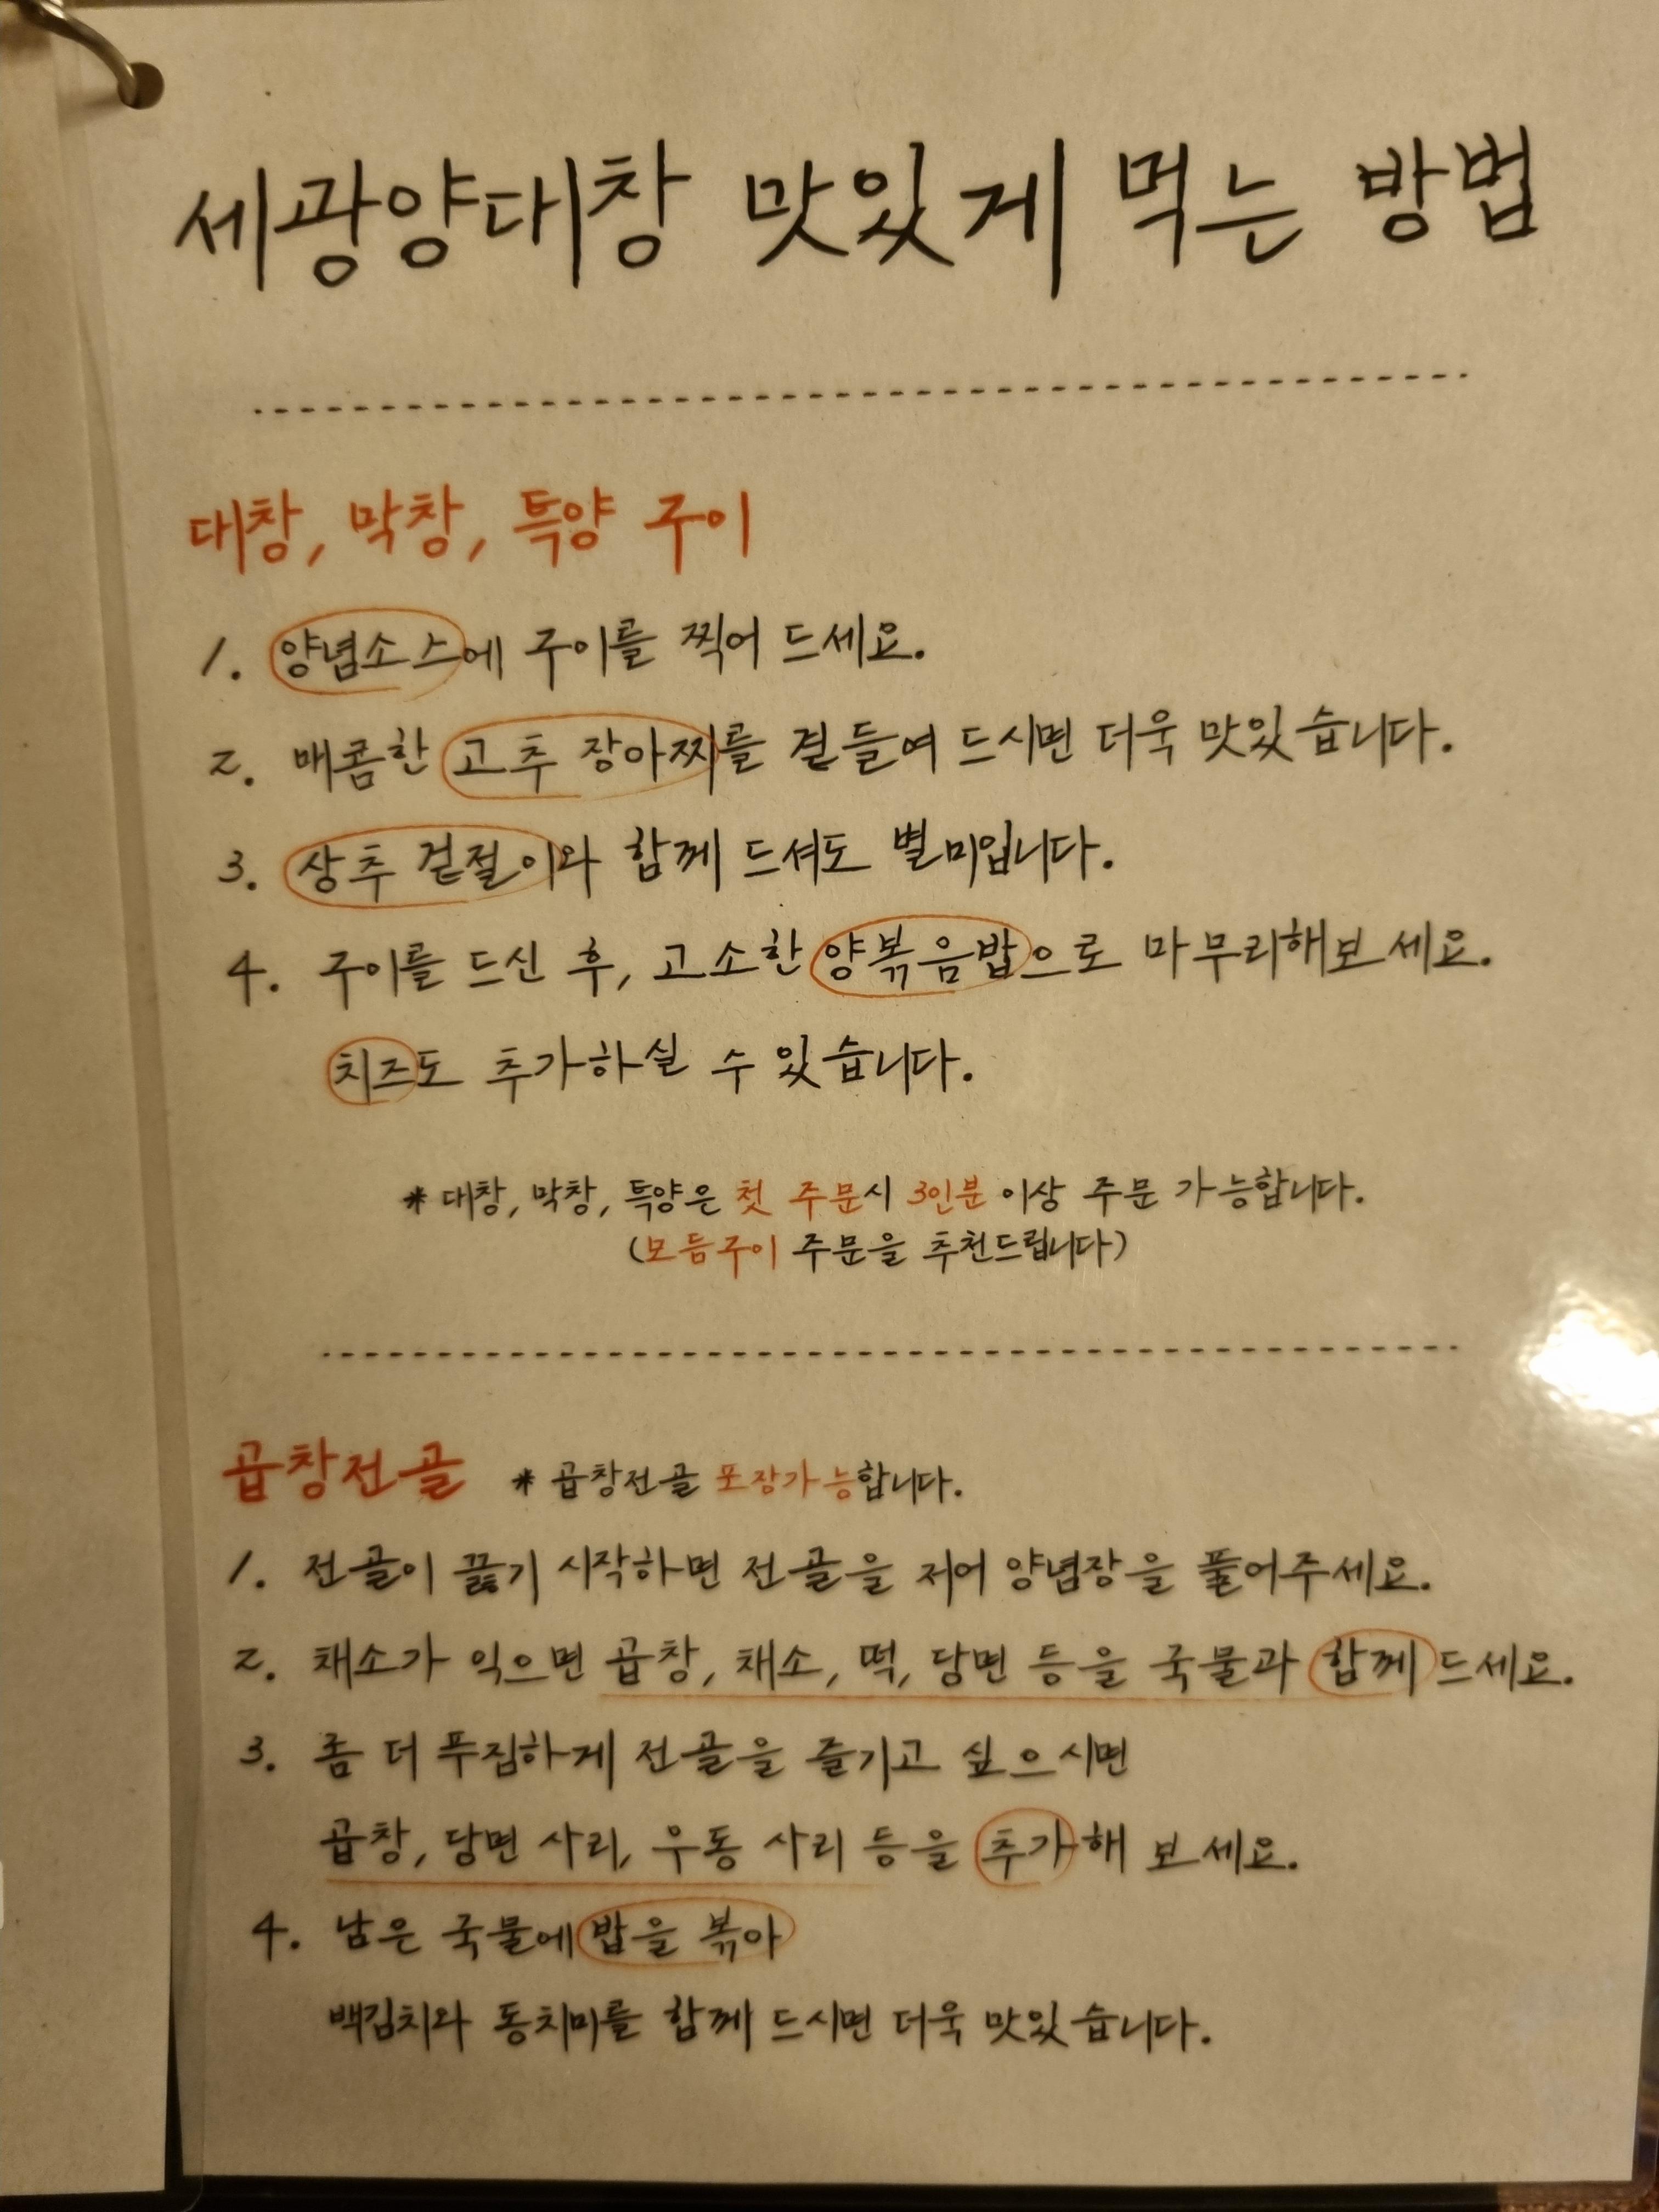 세광양대창 맛있게 먹는 방법
대창, 막창, 특양 구이
1. 양념소스에 구이를 찍어 드세요.
2. 매콤한 고추 장아찌를 곁들여 드시면 더욱 맛있습니다.
3. 상추 겉절이와 함께 드셔도 별미입니다.
4. 구이를 드신 후, 고소한 양볶음밥으로 마무리해보세요.
치즈도 추가하실 수 있습니다.
* 대창, 막창, 특양은 첫 주문시 3인분 이상 주문 가능합니다.
(모듬구이 주문을 추천드립니다)
곱창전골 * 곱창전골 포장가능합니다.
1. 전골이 끓기 시작하면 전골을 저어 양념장을 풀어주세요.
2. 채소가 익으면 곱창, 채소, 떡, 당면 등을 국물과 함께 드세요.
3. 좀 더 푸짐하게 전골을 즐기고 싶으시면
곱창, 당면 사리, 우동 사리 등을 추가해 보세요.
4. 남은 국물에 밥을 볶아
백김치와 동치미를 함께 드시면 더욱 맛있습니다.